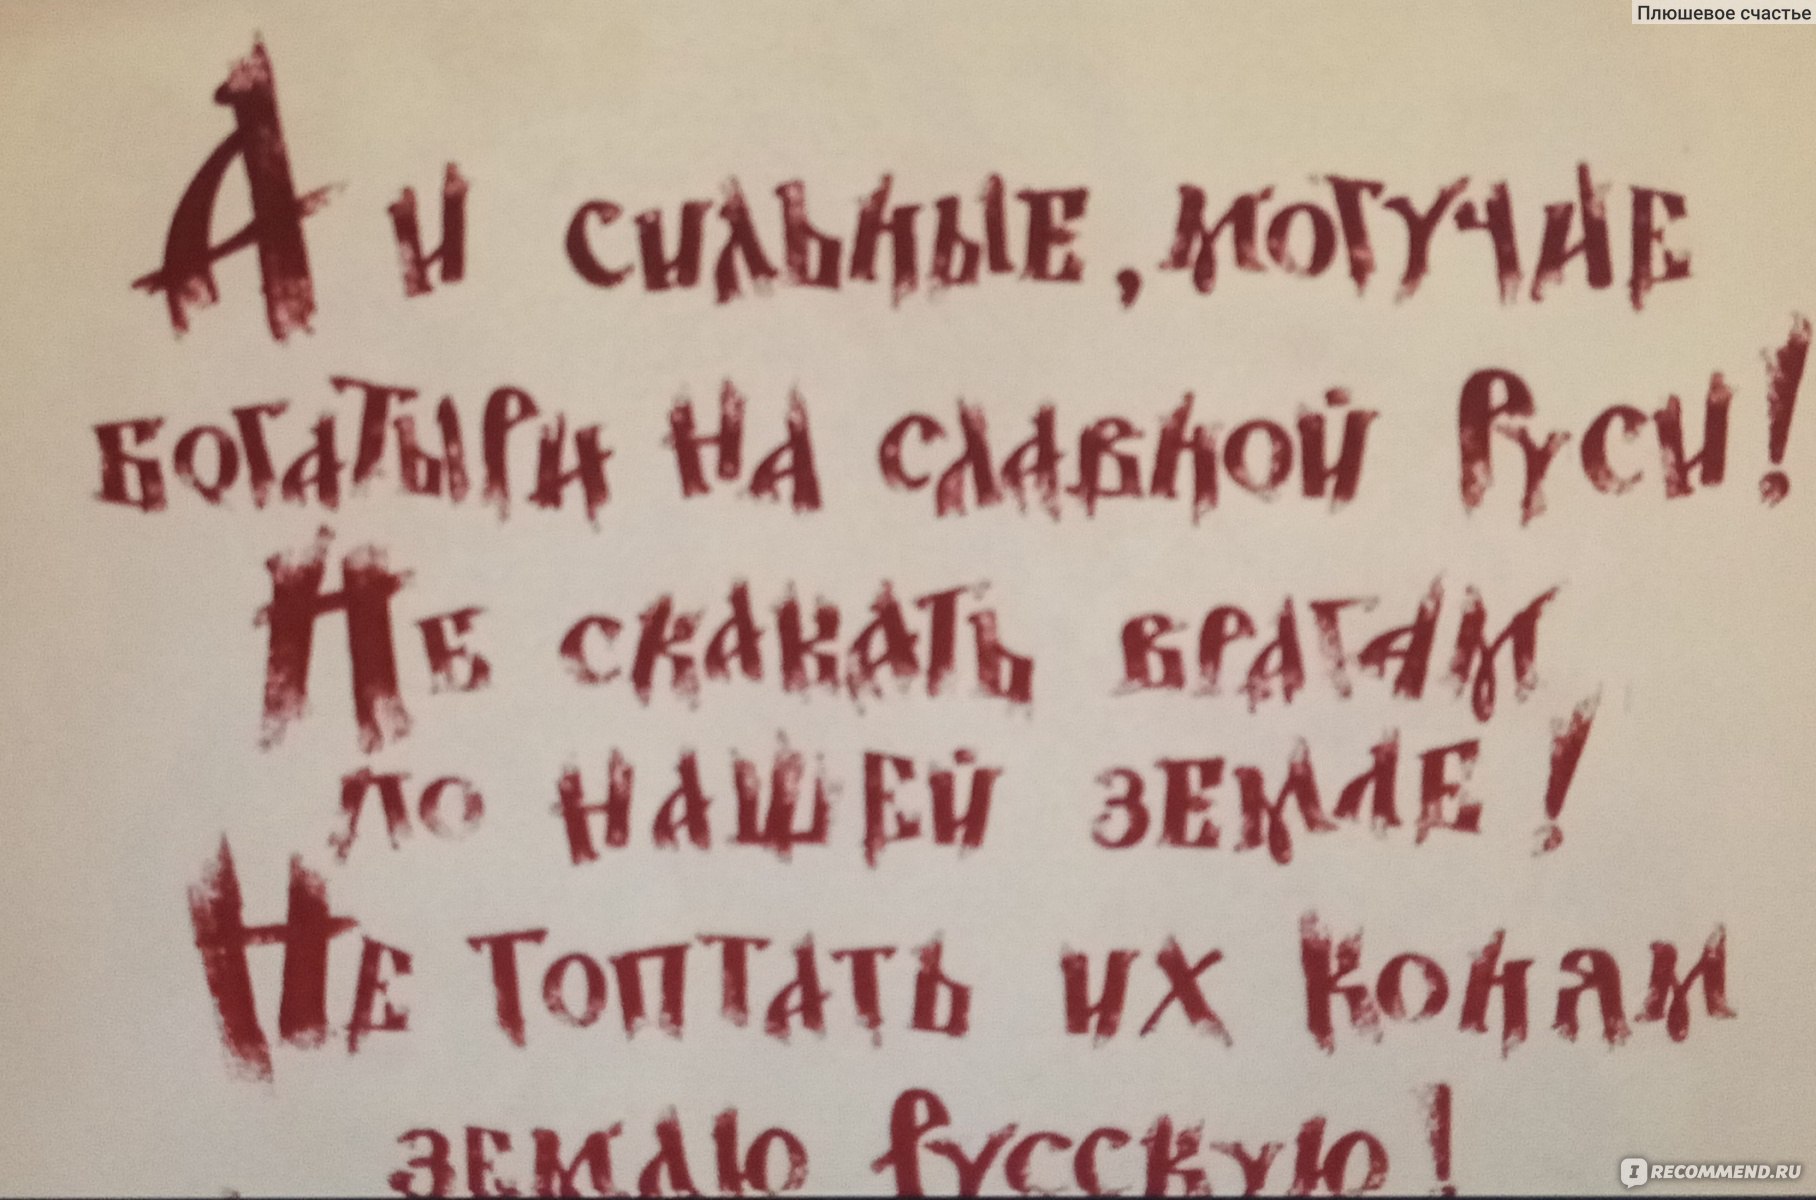 Плюшевое счастье
А и сильные, могучие
богатыри на славной Руси!
Не скакать врагам
по нашей земле!
Не топтать их коням
землю Русскую!
IRECOMMEND.RU